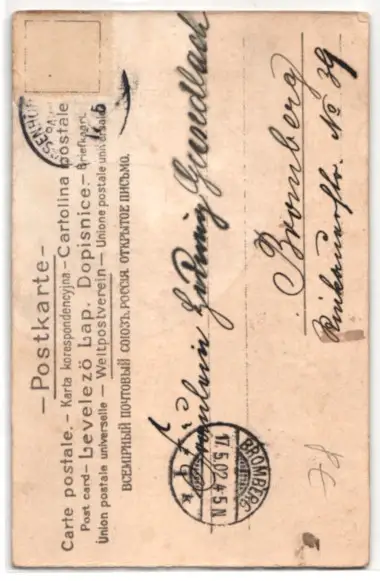 —Postkarte—
Carte postale. – Karta korespondencyjna – Cartolina postale
Post card – Levelező Lap. Dopisnice. – Briefkaart.
Union postale universelle — Weltpostverein — Unione postale universale
ВСЕМІРНЫЙ ПОЧТОВЫЙ СОЮЗЪ. РОССІЯ. ОТКРЫТОЕ ПИСЬМО.
Fräulein Hedwig Gundlach
Bromberg
Rinkauerstr. No 39
BROMBERG
17.5.02.4-5N